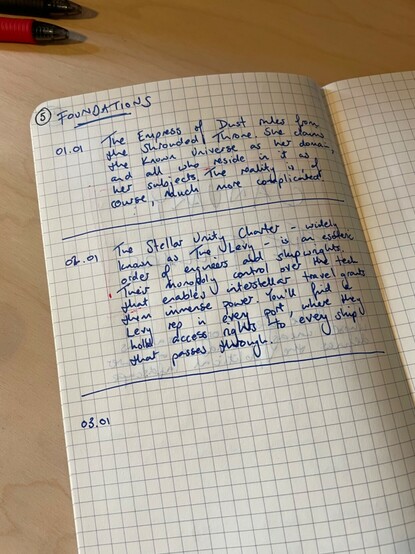 5 FOUNDATIONS
01.01 The Empress of Dust rules from
the Shrouded Throne. She claims
the Known Universe as her domain,
and all who reside in it as
her subjects. The reality is of
course, much more complicated.
02.01 The Stellar Unity Charter - widely
known as The Levy - is an esoteric
order of engineers and shipwrights.
Their monopoly control over the tech
that enables interstellar travel grants
them immense power. You'll find a
Levy rep in every port, where they
hold access rights to every ship
that passes through.
03.01